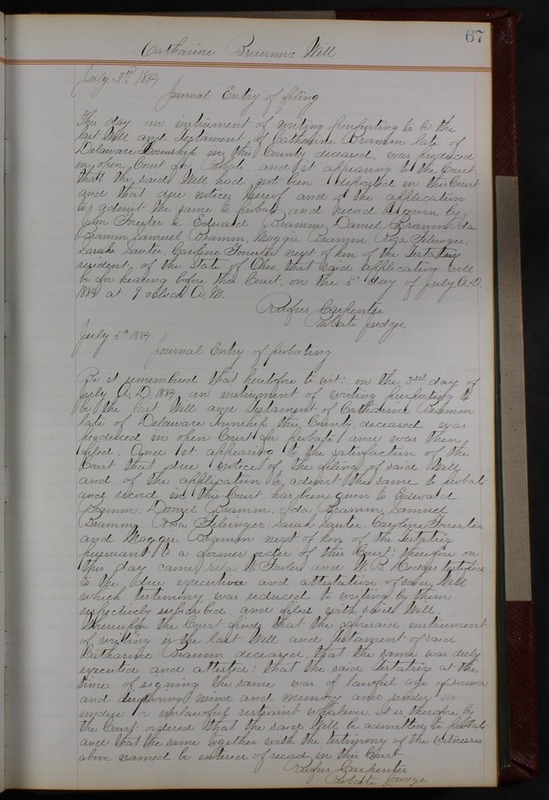 67
Catharine Bramm's Will
July 3rd 1884
Journal Entry of filing
This day an instrument of writing purporting to be the
last Will and Testament of Catharine Bramm late of
Delaware Township in this County deceased, was produced
in open Court for Probate and it appearing to the Court
that the said Will had not been deposited in this Court
and that due notice hereof and of the application
to admit the same to probate and record is given by
John to Edward Bramm, Daniel Bramm Ida
Bramm Samuel Bramm, Maggie Bramm Rosa
Sarah Sauter, Caroline next of kin of the Testatrix
resident of the State of Ohio, that said application will
be for hearing before this Court, on the 5th day of July A.D.
1884 at 9 oclock A.M.
Rufus Carpenter
Probate Judge
July 5th 1884
Journal Entry of probating
Be it remembered that heretofore to wit: on the 3rd day of
July A.D. 1884 an instrument of writing purporting to
be the last Will and Testament of Catharine Bramm
late of Delaware Township this County, deceased was
produced in open Court for probate and was then
filed. And it appearing to the satisfaction of the
Court that due notice of the filing of said Will
and of the application to admit the same to probate
and record in this Court has been given to Edward
Bramm, Daniel Bramm, Ida Bramm Samuel
Bramm, Rosa Sarah Sauter, Caroline
and Maggie Bramm next of kin of the Testatrix
pursuant to a former order of this Court: therefore on
this day came W. and W. B. testified
to the due execution and attestation of said Will
which testimony was reduced to writing by them
respectively subscribed and filed with said Will.
Whereupon the Court finds that the aforesaid instrument
of writing is the last Will and Testament of said
Catharine Bramm deceased, that the same was duly
executed and attested: that the said Testatrix at the
time of signing the same was of lawful age of sound
and disposing mind and memory and under no
undue or unlawful restraint whatever. It is therefore by
the Court ordered that the said Will be admitted to probate
and that the same together with the testimony of the witnesses
above named be entered of record in this Court
Rufus Carpenter
Probate Judge